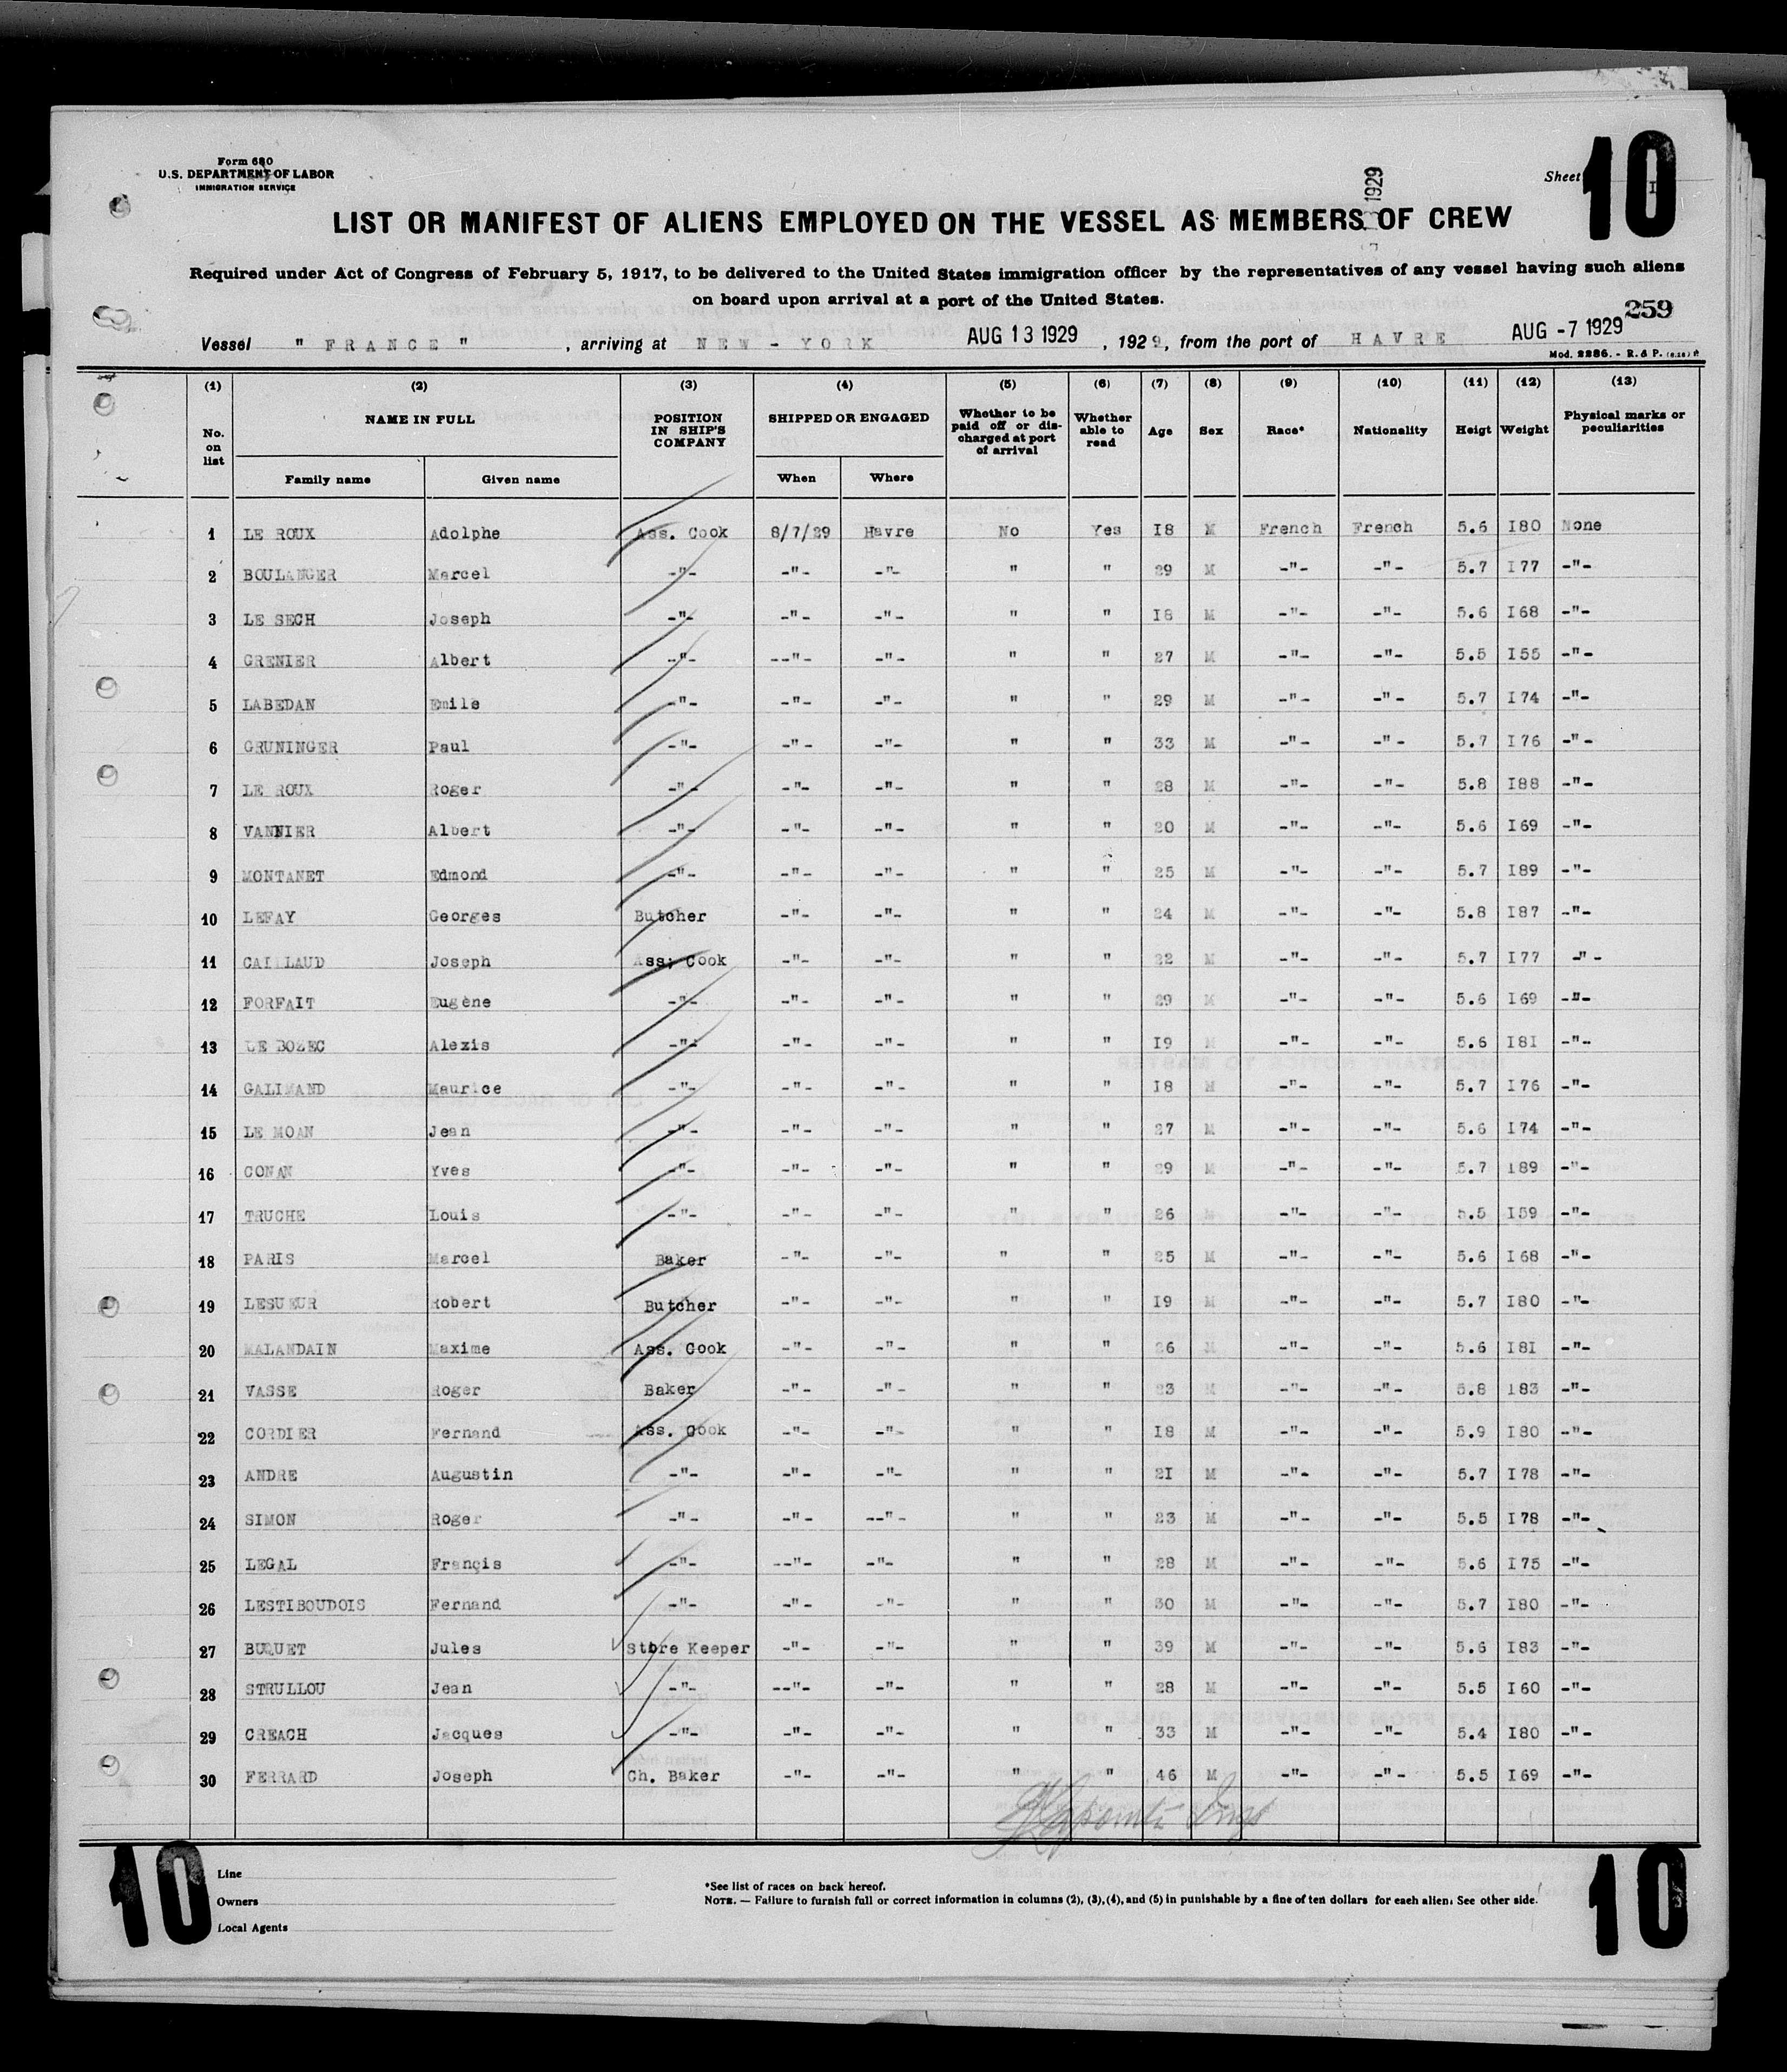 Form 680
U.S. DEPARTMENT OF LABOR
IMMIGRATION SERVICE
Sheet 10
1929
LIST OR MANIFEST OF ALIENS EMPLOYED ON THE VESSEL AS MEMBERS OF CREW
Required under Act of Congress of February 5, 1917, to be delivered to the United States immigration officer by the representatives of any vessel having such aliens
on board upon arrival at a port of the United States.
259
Vessel " FRANCE " , arriving at NEW - YORK AUG 13 1929 , 1929, from the port of HAVRE AUG -7 1929
Mod. 2286. - R. & P.
(1) (2) (3) (4) (5) (6) (7) (8) (9) (10) (11) (12) (13)
No. on list NAME IN FULL POSITION IN SHIP'S COMPANY SHIPPED OR ENGAGED Whether to be paid off or discharged at port of arrival Whether able to read Age Sex Race* Nationality Heigt Weight Physical marks or peculiarities
Family name Given name When Where
1 LE ROUX Adolphe Ass. Cook 8/7/29 Havre No Yes I8 M French French 5.6 I80 None
2 BOULANGER Marcel -"- -"- -"- " " 29 M -"- -"- 5.7 I77 -"-
3 LE SECH Joseph -"- -"- -"- " " I8 M -"- -"- 5.6 I68 -"-
4 GRENIER Albert -"- --"- -"- " " 27 M -"- -"- 5.5 I55 -"-
5 LABEDAN Emile -"- -"- -"- " " 29 M -"- -"- 5.7 I74 -"-
6 GRUNINGER Paul -"- -"- -"- " " 33 M -"- -"- 5.7 I76 -"-
7 LE ROUX Roger -"- -"- -"- " " 28 M -"- -"- 5.8 I88 -"-
8 VANNIER Albert -"- -"- -"- " " 20 M -"- -"- 5.6 I69 -"-
9 MONTANET Edmond -"- -"- -"- " " 25 M -"- -"- 5.7 I89 -"-
10 LEFAY Georges Butcher -"- -"- " " 24 M -"- -"- 5.8 I87 -"-
11 CAILLAUD Joseph Ass; Cook -"- -"- " " 22 M -"- -"- 5.7 I77 -"-
12 FORFAIT Eugène -"- -"- -"- " " 29 M -"- -"- 5.6 I69 -"-
13 LE BOZEC Alexis -"- -"- -"- " " I9 M -"- -"- 5.6 I8I -"-
14 GALIMAND Maurice -"- -"- -"- " " I8 M -"- -"- 5.7 I76 -"-
15 LE MOAN Jean -"- -"- -"- " " 27 M -"- -"- 5.6 I74 -"-
16 CONAN Yves -"- -"- -"- " " 29 M -"- -"- 5.7 I89 -"-
17 TRUCHE Louis -"- -"- -"- " " 26 M -"- -"- 5.5 I59 -"-
18 PARIS Marcel Baker -"- -"- " " 25 M -"- -"- 5.6 I68 -"-
19 LESUEUR Robert Butcher -"- -"- " " I9 M -"- -"- 5.7 I80 -"-
20 MALANDAIN Maxime Ass. Cook -"- -"- " " 26 M -"- -"- 5.6 I8I -"-
21 VASSE Roger Baker -"- -"- " " 23 M -"- -"- 5.8 I83 -"-
22 CORDIER Fernand Ass. Cook -"- -"- " " I8 M -"- -"- 5.9 I80 -"-
23 ANDRE Augustin -"- -"- -"- " " 2I M -"- -"- 5.7 I78 -"-
24 SIMON Roger -"- -"- --"- " " 23 M -"- -"- 5.5 I78 -"-
25 LEGAL Françis -"- --"- -"- " " 28 M -"- -"- 5.6 I75 -"-
26 LESTIBOUDOIS Fernand -"- -"- -"- " " 30 M -"- -"- 5.7 I80 -"-
27 BUQUET Jules Store Keeper -"- -"- " " 39 M -"- -"- 5.6 I83 -"-
28 STRULLOU Jean -"- --"- -"- " " 28 M -"- -"- 5.5 I60 -"-
29 CREACH Jacques -"- -"- -"- " " 33 M -"- -"- 5.4 I80 -"-
30 FERRARD Joseph Ch. Baker -"- -"- " " 46 M -"- -"- 5.5 I69 -"-
10
Line
Owners
Local Agents
*See list of races on back hereof.
NOTE. — Failure to furnish full or correct information in columns (2), (3), (4), and (5) in punishable by a fine of ten dollars for each alien. See other side.
10